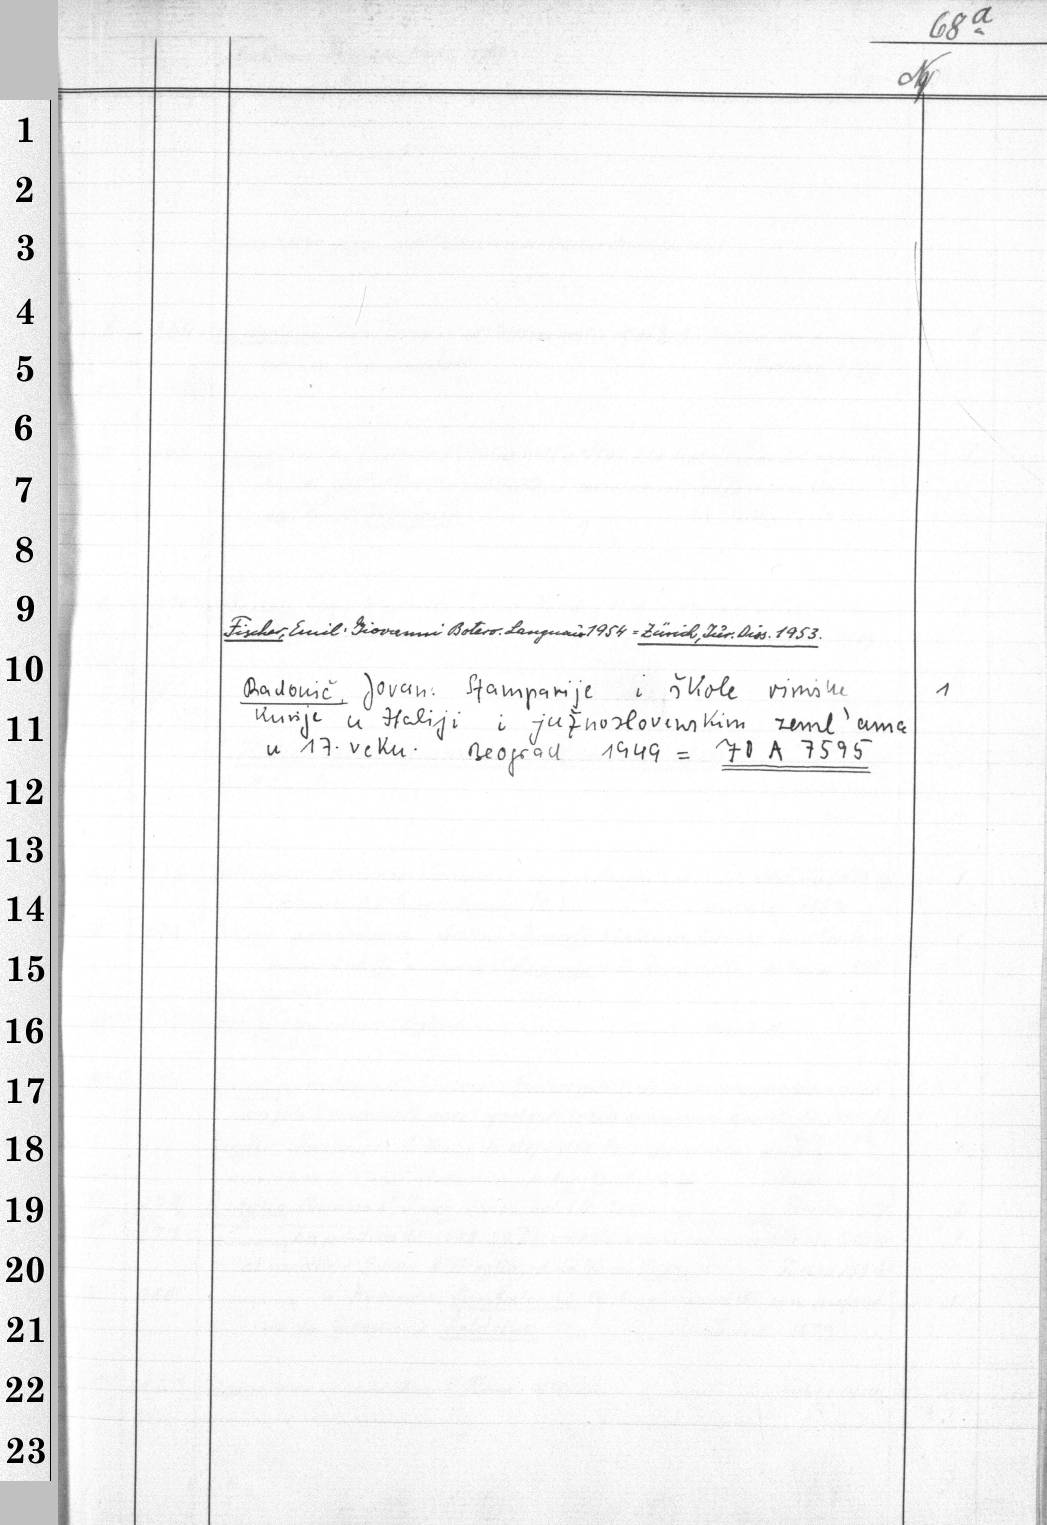 68a
Ny
1
2
3
4
5
6
7
8
9
Fischer, Emil: Giovanni Botero. Langnau 1954 = Zürich, Jur. Diss. 1953.
10
Radonić, Jovan: Štamparije i škole rimske 1
11
Kurije u Italiji i južnoslovenskim zeml'ama
u 17. veku. Beograd 1949 = 70 A 7595
12
13
14
15
16
17
18
19
20
21
22
23